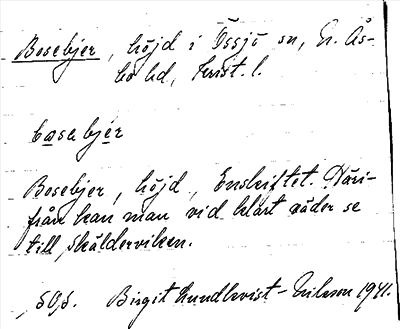 Bosebjer, höjd i Össjö sn, N. Ås-
bo hd, Krist. l.
bosebjér
Bosebjer, höjd, Enskiftet. Häri-
från kan man vid klart väder se
till Skälderviken.
Birgit Lundkvist-Erikson 1941.